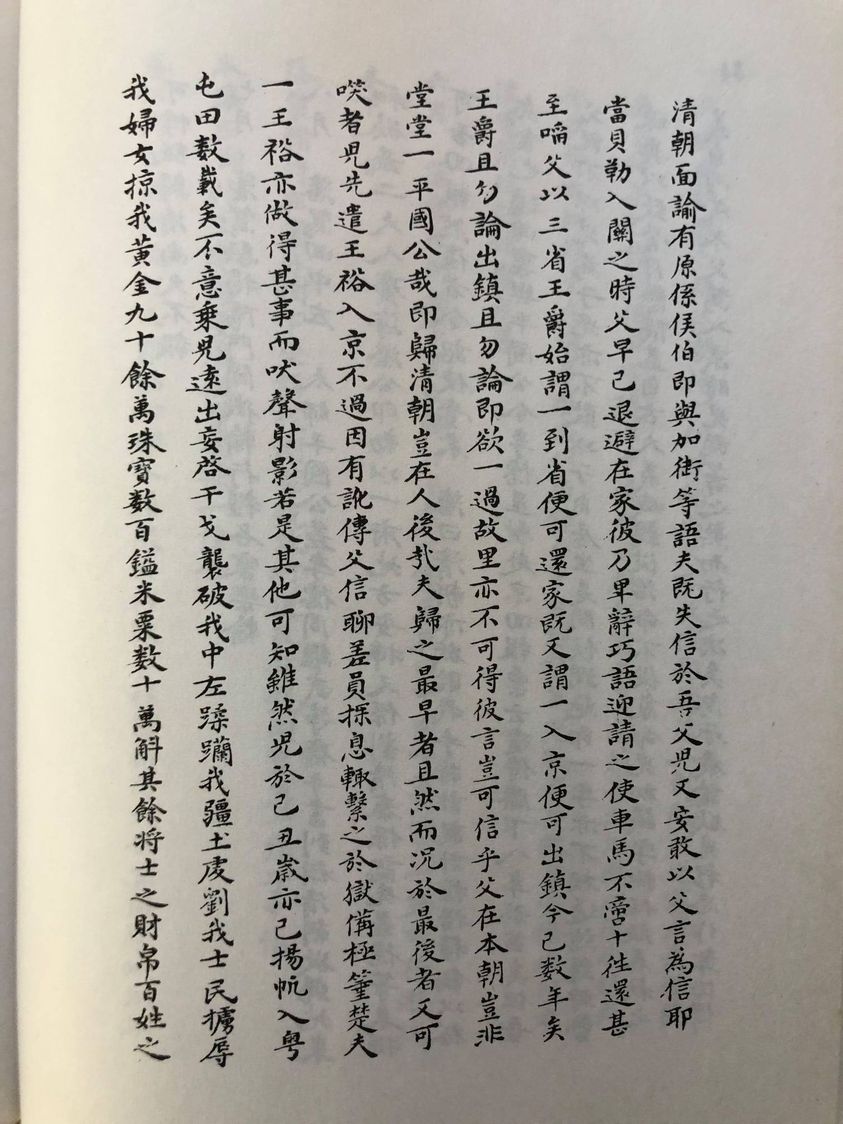 清朝面諭有原係侯伯即與加銜等語夫既失信於吾父兒又安敢以父言為信耶
當貝勒入關之時父早已退避在家彼乃卑辭巧語迎請之使車馬不啻十往還甚
至啗父以三省王爵始謂一到省便可還家既又謂一入京便可出鎮今已数年矣
王爵且勿論出鎮且勿論即欲一過故里亦不可得彼言豈可信乎父在本朝豈非
堂堂一平國公哉即歸清朝豈在人後哉夫歸之最早者且然而况於最後者又可
㗖者兒先遣王裕入京不過因有訛傳父信聊差員探息輙繫之於獄備極箠楚夫
一王裕亦做得甚事而吠聲射影若是其他可知雖然兒於己丑嵗亦已揚帆入粵
屯田数載矣不意乘兒遠出妄啓干戈襲破我中左蹂躪我疆土虔劉我士民擄辱
我婦女掠我黃金九十餘萬珠寶数百鎰米粟数十萬斛其餘将士之財帛百姓之